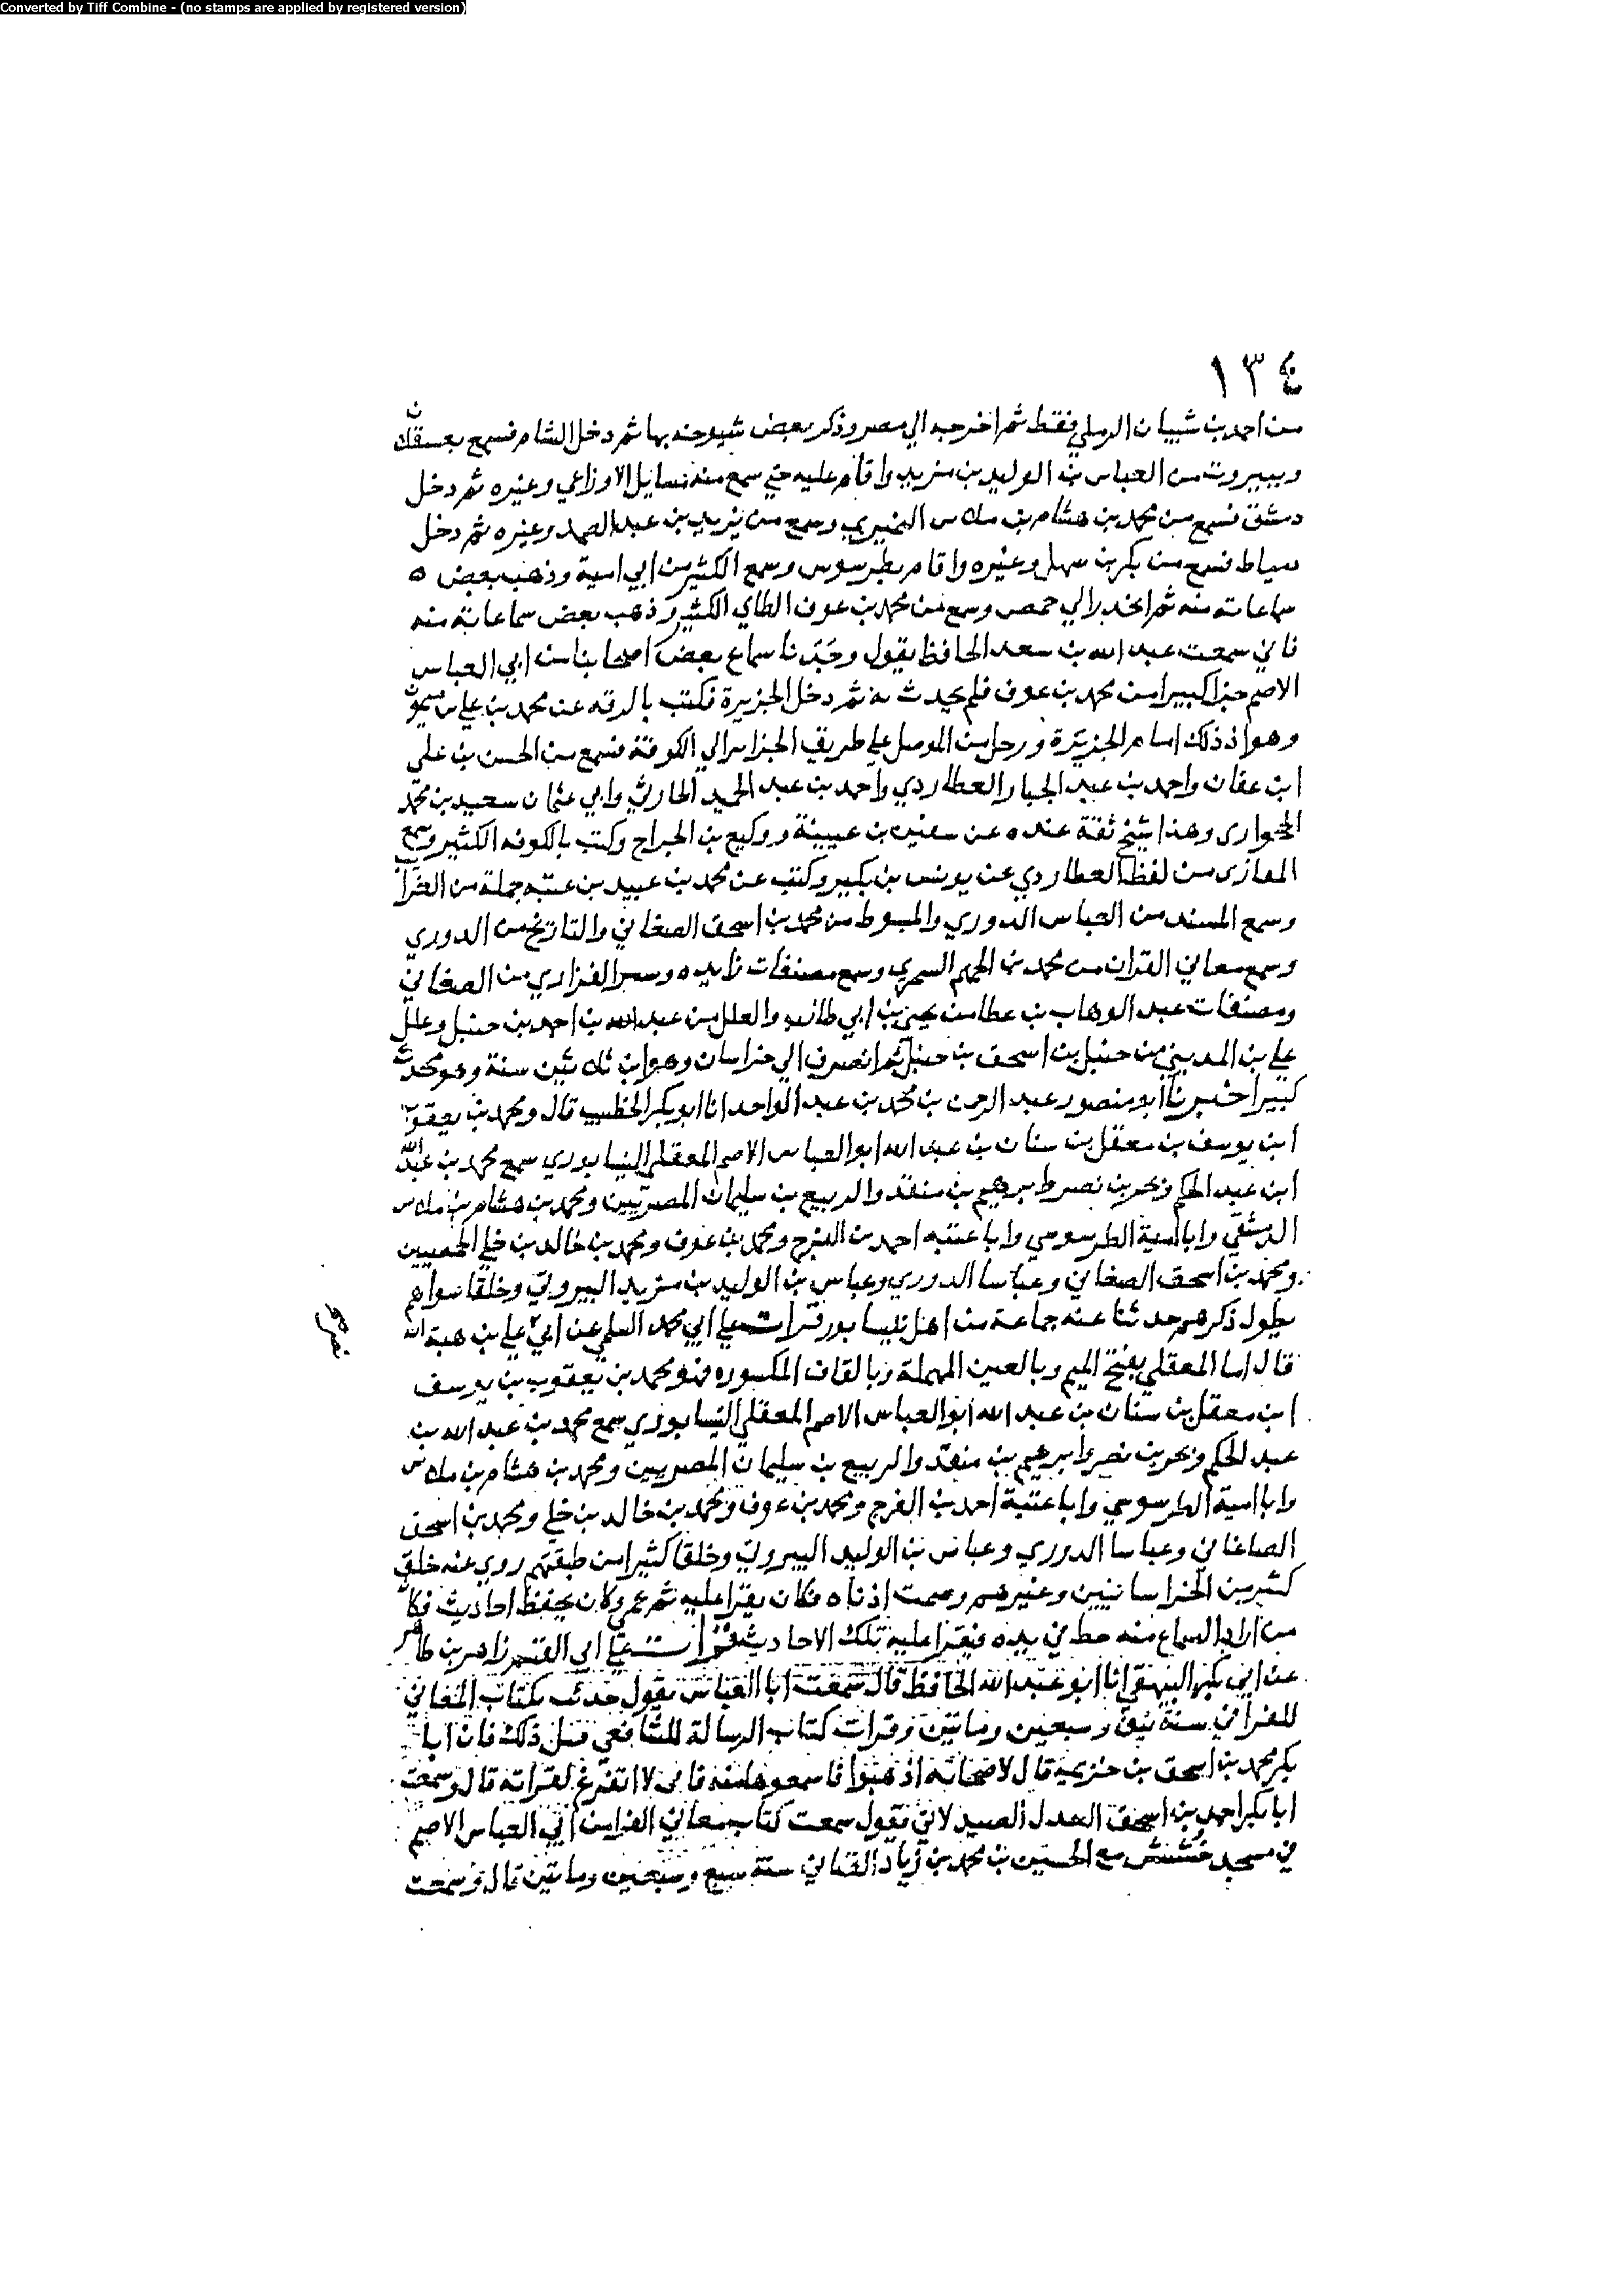 Converted by Tiff Combine - (no stamps are applied by registered version)
١٣٤
من احمد بن شيبان الرملي فقط ثم اخرجه الي مصر وذكر بعض شيوخه بها ثم دخل الشام فسمع بعسقلان
وببيروت من العباس بن الوليد بن مزيد واقام عليه حتي سمع منه مسايل الاوزاعي وغيره ثم دخل
دمشق فسمع من محمد بن هشام بن ملاس النميري وسمع من يزيد بن عبد الصمد وغيره ثم دخل
دمياط فسمع من بكر بن سهل وغيره واقام بطرسوس وسمع الكثير من ابي امية وذهب بعض ه
سماعاته منه ثم انحدر الي حمص وسمع من محمد بن عوف الطاي الكثير وذهب بعض سماعاته منه
فاني سمعت عبد الله بن سعد الحافظ يقول وجدنا سماع بعض اصحابنا من ابي العباس
الاصم جزا كبيرا من محمد بن عوف فلم يحدث به ثم دخل الجزيرة فكتب بالرقه عن محمد بن علي بن ميمون
وهو اذ ذلك امام الجزيرة ورحل من الموصل علي طريق الجزاير الي الكوفة فسمع من الحسن بن علي
ابن عفان واحمد بن عبد الجبار العطاردي واحمد بن عبد الحميد الحارثي وابي عثمان سعيد بن محمد
الحجواري وهذا شيخ ثقة عنده عن سفين بن عيينة ووكيع بن الجراح وكتب بالكوفه الكثير وسمع
المغازي من لفظ العطاردي عن يونس بن بكير وكتب عن محمد بن عبيد بن عتبه جملة من الغراب
وسمع المسند من العباس الدوري والمبسوط من محمد بن اسحق الصغاني والتاريخ من الدوري
وسمع معاني القران من محمد بن الجهم السمري وسمع مصنفات زايده وسير الفزاري من الصغاني
ومصنفات عبد الوهاب بن عطا من يحيى بن ابي طالب والعلل من عبد الله بن احمد بن حنبل وعلل
علي بن المديني من حنبل بن اسحق بن حنبل ثم انصرف الي خراسان وهو ابن ثلاثين سنة وهو محدث
كبير اخبرنا ابو منصور عبد الرحمن بن محمد بن عبد الواحد انا ابو بكر الخطيب قال ومحمد بن يعقوب
ابن يوسف بن معقل بن سنان بن عبد الله ابو العباس الاصم المعقلي النيسابوري سمع محمد بن عبد الله
ابن عبد الحكم وبحر بن نصر وابرهيم بن منقذ والربيع بن سليمان المصريين ومحمد بن هشام بن ملاس
الدمشقي وابا امية الطرسوسي وابا عتبه احمد بن الفرج ومحمد بن عوف ومحمد بن خالد بن خلي الحمصيين
ومحمد بن اسحق الصغاني وعباسا الدوري وعباس بن الوليد بن مزيد البيروتي وخلقا سواهم
يطول ذكرهم حدثنا عنه جماعة من اهل نيسابور قرات علي ابي محمد السلمي عن ابي علي بن هبة الله
قال اما المعقلي بفتح الميم وبالعين المهملة وبالقاف المكسوره فهو محمد بن يعقوب بن يوسف
ابن معقل بن سنان بن عبد الله ابو العباس الاصم المعقلي النيسابوري سمع محمد بن عبد الله بن
عبد الحكم وبحر بن نصر وابرهيم بن منقذ والربيع بن سليمان المصريين ومحمد بن هشام بن ملاس
وابا امية الطرسوسي وابا عتبة احمد بن الفرج ومحمد بن عوف ومحمد بن خالد بن خلي ومحمد بن اسحق
الصاغاني وعباسا الدوري وعباس بن الوليد البيروتي وخلقا كثيرا من طبقتهم روي عنه خلق
كثير من الخراسانيين وغيرهم وصمت اذناه فكان يقرا عليه ثم عمي وكان يحفظ احاديث فكان
من اراد السماع منه حط في يده فيقرا عليه تلك الاحاديث قرات علي ابي القسم زاهر بن طاهر
عن ابي بكر البيهقي انا ابو عبد الله الحافظ قال سمعت ابا العباس يقول حدثت بكتاب المعاني
للفرا في سنة نيف وسبعين ومائتين وقرات كتاب الرسالة للشافعي قبل ذلك فان ابا
بكر محمد بن اسحق بن خزيمة قال لاصحابه اذهبوا فاسمعوها منه فاني لا اتفرغ لقراته قال وسمعت
ابا بكر احمد بن اسحق العدل الصيدلاني يقول سمعت كتاب معاني الفرا من ابي العباس الاصم
في مسجد مع الحسين بن محمد بن زياد القباني سنة سبع وسبعين ومائتين قال وسمعت